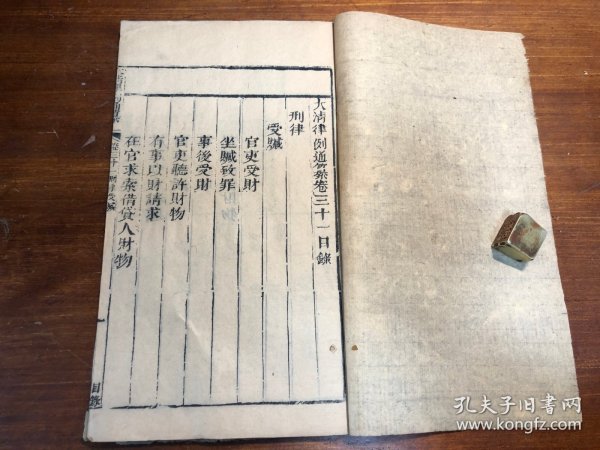 大清律例通纂卷三十一目錄
刑律
受贓
官吏受財
坐贓致罪
事後受財
官吏聽許財物
有事以財請求
在官求索借貸人財物
目錄
孔夫子旧书网
www.kongfz.com